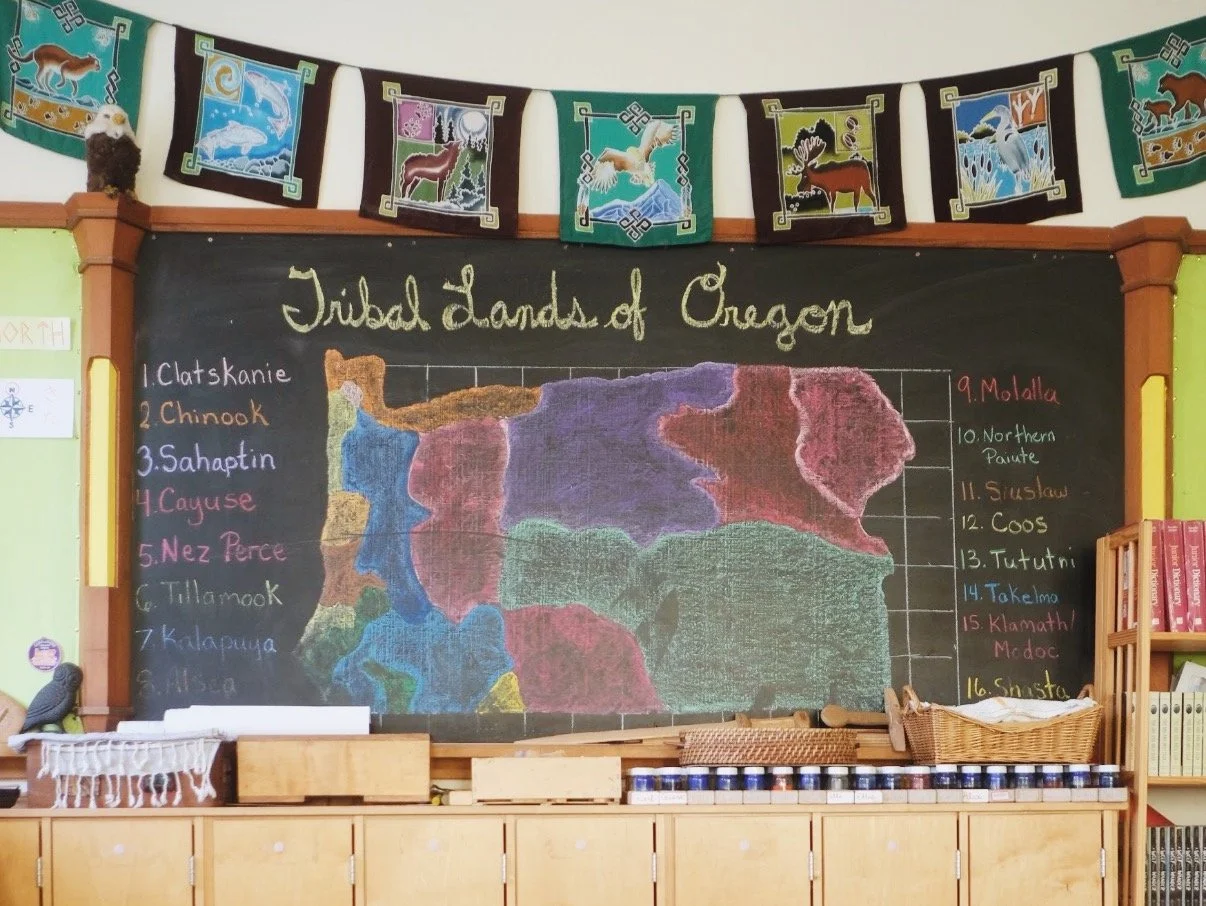 Tribal Lands of Oregon
1. Clatskanie
2. Chinook
3. Sahaptin
4. Cayuse
5. Nez Perce
6. Tillamook
7. Kalapuya
8. Alsea
9. Molalla
10. Northern
Paiute
11. Siuslaw
12. Coos
13. Tututni
14. Takelma
15. Klamath/
Modoc
16. Shasta
ORTH
N
E
S
Junior Dictionary
Junior Dictionary